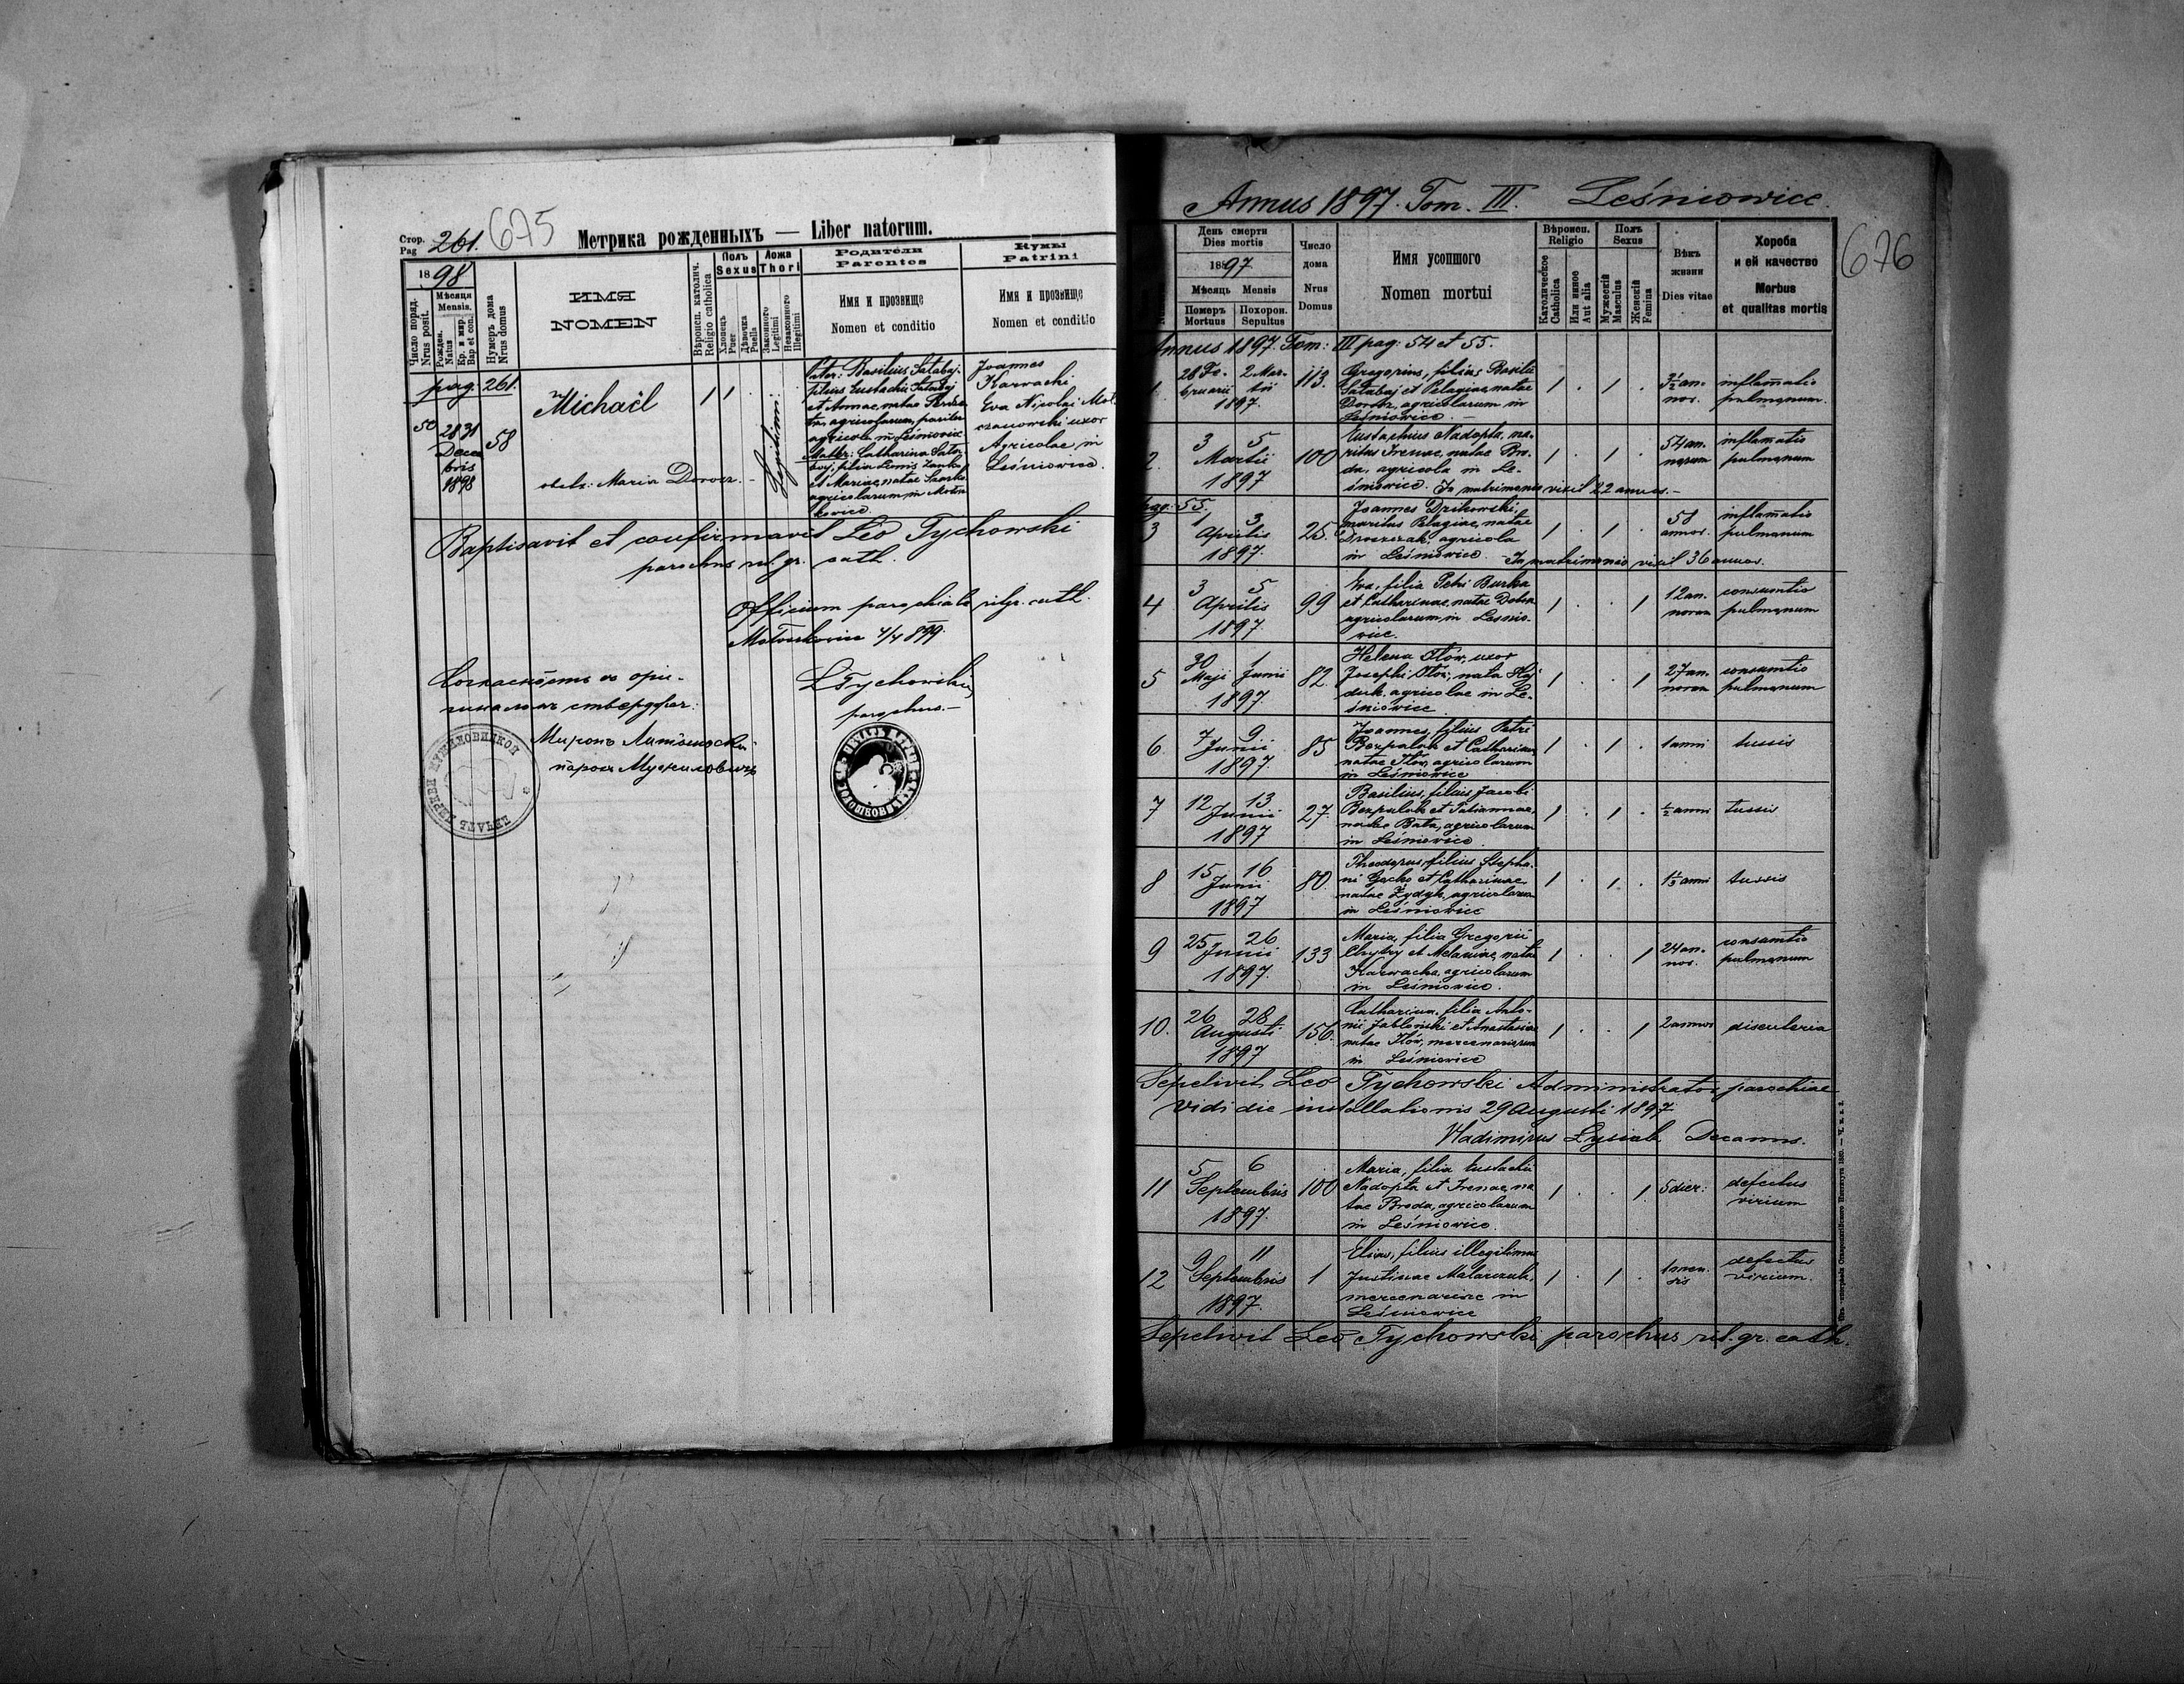 Стор.
Pag 261. 675
Метрика рожденныхъ — Liber natorum.
1898
Число поряд.
Nrus posit.
Мѣсяця
Mensis.
Рожден.
Natus
Кр. и мир.
Bap et con.
Нумеръ дома
Nrus domus
ИМЯ
NOMEN
Вѣроисп. католич.
Religio catholica
Полъ
Sexus
Хлопець
Puer
Дѣвочка
Puella
Ложа
Thori
Законного
Legitimi
Незаконного
Illegitimi
Родители
Parentes
Имя и прозвище
Nomen et conditio
Кумы
Patrini
Имя и прозвище
Nomen et conditio
pag. 261.
50
28 31
Decem
bris
1898
58
Michaël
obstr: Maria Dorosz.
1 1
Legitimi:
Pater: Basilius Satabaj
filius Eustachii Satabaj
et Annae, natae
agricolarum, pariter
agricola in Leśniowice
Mater: Catharina
filia
et Mariae, natae
agricolarum in Mosto
kowice.
Joannes
Karwacki
Eva Nicolai
uxor
Agricolae in
Leśniowice.
Baptisavit et confirmavit Leo Tychowski
parochus rit. gr. cath.
Officium parochiale rit. gr. cath.
4/4 899.
LTychowski
parochus.
Согласность съ ори-
гиналомъ ствердфаю:
Миронъ
парох
Annus 1897. Tom. III. Leśniowice.
676
День смерти
Dies mortis
1897
Мѣсяць Mensis
Померъ
Mortuus
Похорон.
Sepultus
Число
дома
Nrus
Domus
Имя усопшого
Nomen mortui
Вѣроисп.
Religio
Католическое
Catholica
Или инное
Aut alia
Полъ
Sexus
Мужескій
Masculus
Женскій
Femina
Вѣкъ
жизни
Dies vitae
Хороба
и ей качество
Morbus
et qualitas mortis
Annus 1897. Tom: III pag: 54 et 55.
1. 28 Fe- 2 Mar-
bruarii tii
1897.
113.
Gregorius, filius Basilii
Satabaj et Pelagiae, natae
Dorosz, agricolarum in
Leśniowice.
1 . 1 .
3½ an-
nor.
inflamatio
pulmonum.
2. 3 5
Martii
1897
100
Eustachius Nadopta, ma-
ritus Irenae, natae Bro-
da, agricola in Le-
śniowice. In matrimonio vixit 22 annos.-
1 . 1 .
54 an-
norum
inflamatio
pulmonum
pag: 55.
3 1 3
Aprilis
1897.
25.
Joannes Drikowski,
maritus Pelagiae, natae
agricola
in Leśniowice. In matrimonio vixit 36 annos.
1 . 1 .
58
annor.
inflamatio
pulmonum
4 3 5
Aprilis
1897.
99
Eva, filia Petri Burka
et Catharinae, natae
agricolarum in Leśnio-
wice.
1 . . 1
12 an-
norum
consumtio
pulmonum
5 30 1
Maji Junii
1897.
82.
Helena Iłów, uxor
Josephi Iłów, nata Haj
duk, agricolae in Le-
śniowice
1 . . 1
27 an-
norum
consumtio
pulmonum
6. 7 9
Junii
1897.
85
Joannes, filius Petri
Bezpalok et Catharinae
natae Iłów, agricolarum
in Leśniowice
1 . 1 .
1 anni
tussis
7 12 13
Junii
1897
27.
Basilius, filius Jacobi
Bezpalok et Tatiannae,
natae Bata, agricolarum
in Leśniowice
1 . 1 .
½ anni
tussis
8 15 16
Junii
1897
80.
Theodorus, filius Stepha-
ni Gecko et Catharinae
natae Zydyk, agricolarum
in Leśniowice
1 . 1 .
1½ anni
tussis
9 25 26
Junii
1897.
133
Maria, filia Gregorii
Chytry et Melaniae, natae
Karwacka, agricolarum
in Leśniowice.
1 . . 1
24 an-
nor.
consumtio
pulmonum
10. 26 28
Augusti
1897
156.
Catharina, filia Anto-
nii Jabłoński et Anastasiae
natae Iłów, mercenariorum
in Leśniowice
1 . . 1
2 annor
disenteria
Sepelivit Leo Tychowski Administrator parochiae
Vidi die installationis 29 Augusti 1897
Wladimirus Łysiak Decanus.
11 5 6
Septembris
1897.
100
Maria, filia Eustachii
Nadopta et Irenae, na
tae Broda, agricolarum
in Leśniowice.
1 . . 1
5 dier:
defectus
virium
12 9 11
Septembris
1897.
1
Elias, filius illegitimus
Justinae Matarczuk,
mercenariae in
Leśniowice
1 . 1 .
1 men-
sis
defectus
virium.
Sepelivit Leo Tychowski parochus rit. gr. cath.